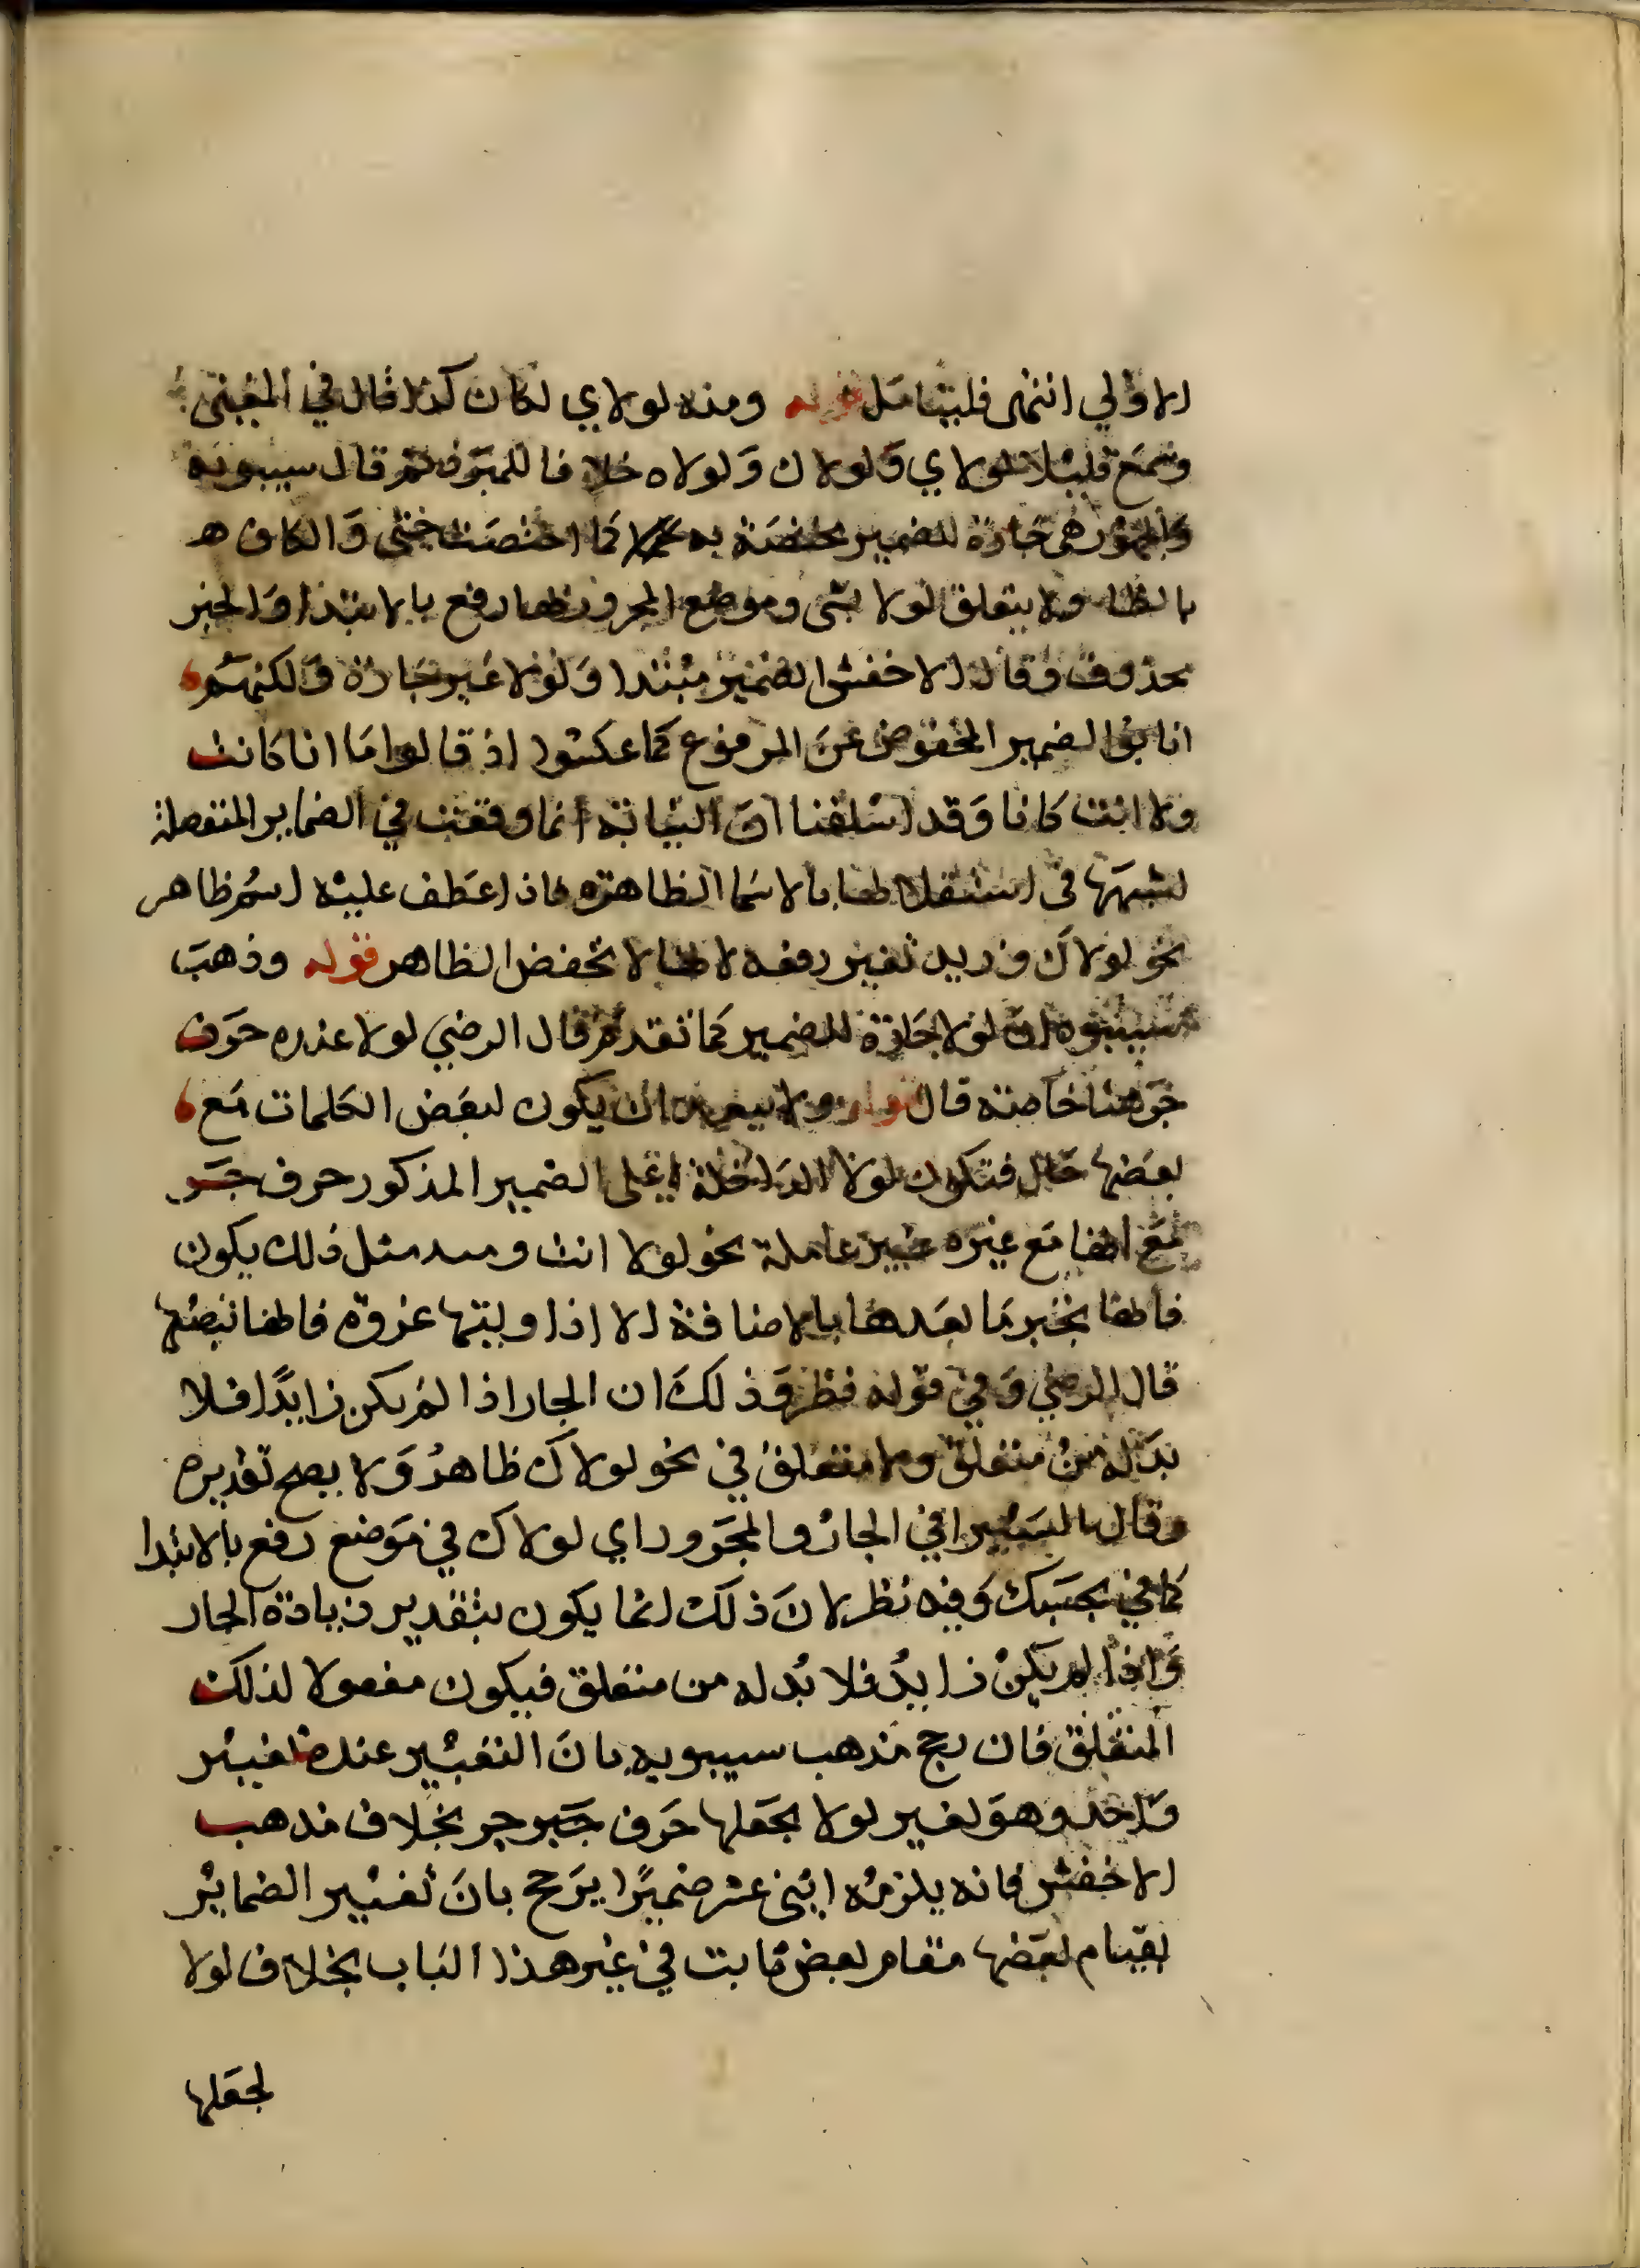 الاولي انتهى فليتامل قوله ومنه لولاي لكان كذا قال في المغنى
وسمع قليلا لولاي ولولاك ولولاه خلافا للمبرد ثم قال سيبويه
والجمهور هي جارة للضمير مختصة به كما اختصت حتى والكاف
بالظا ولا يتعلق لولا بشى وموضع المجرور بها رفع بالابتدا والخبر
محذوف وقال الاخفش الضمير مبتدا ولولا غير جارة ولكنهم
انابوا الضمير المخفوض عن المرفوع كما عكسوا اذ قالوا ما انا كانت
ولا انت كانا وقد اسلفنا ان النيابة انما وقعت في الضماير المنفصلة
لشبهها في استقلالها بالاسما الظاهرة فاذا عطف عليه اسم ظاهر
نحو لولاك وزيد تعين رفعه لانها لا تخفض الظاهر قوله وذهب
سيبويه ان لولا جارة للضمير كما تقدم قال الرضي لولا عنده حرف
جر هنا خاصة قال ولا يبعد ان يكون لبعض الكلمات مع
بعضها حال فتكون لولا الداخلة على الضمير المذكور حرف جر
مع انها مع غيره غير عاملة نحو لولا انت ومثل ذلك يكون
فانها تجر ما بعدها بالاضافة الا اذا وليتها غدوة فانها تنصبها
قال الرضي وفي قوله نظر وذلك ان الجار اذا لم يكن زايدا فلا
بد له من متعلق ولا متعلق في نحو لولاك ظاهر ولا يصح تقديره
وقال السيرافي الجار والمجرور اي لولاك في موضع رفع بالابتدا
كما في بحسبك وفيه نظر لان ذلك انما يكون بتقدير زيادة الجار
واذا لم يكن زايد فلا بد له من متعلق فيكون مفعولا لذلك
المتعلق فان رجح مذهب سيبويه بان التغيير عنده تغيير
واحد وهو تغيير لولا بجعلها حرف جر بخلاف مذهب
الاخفش فانه يلزمه اثنى عشر ضميرا يرجح بان تغيير الضماير
بقيام بعضها مقام بعض ثابت في غير هذا الباب بخلاف لولا
لجعلها